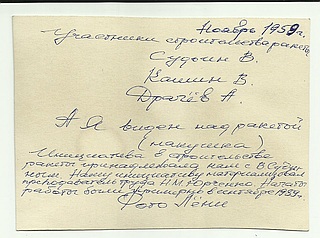 Ноябрь 1959г.
Участники строительства ракеты
Судьин В.
Кашин В.
Драчёв А.
А я виден над ракетой
(макушка)
Инициатива в строительстве
ракеты принадлежала нам с В. Судьи
ным. Нашу инициативу материализовал
преподаватель труда Н.М. Юрченко. Начаты
работы были примерно в сентябре 1959г.
Фото Лёни